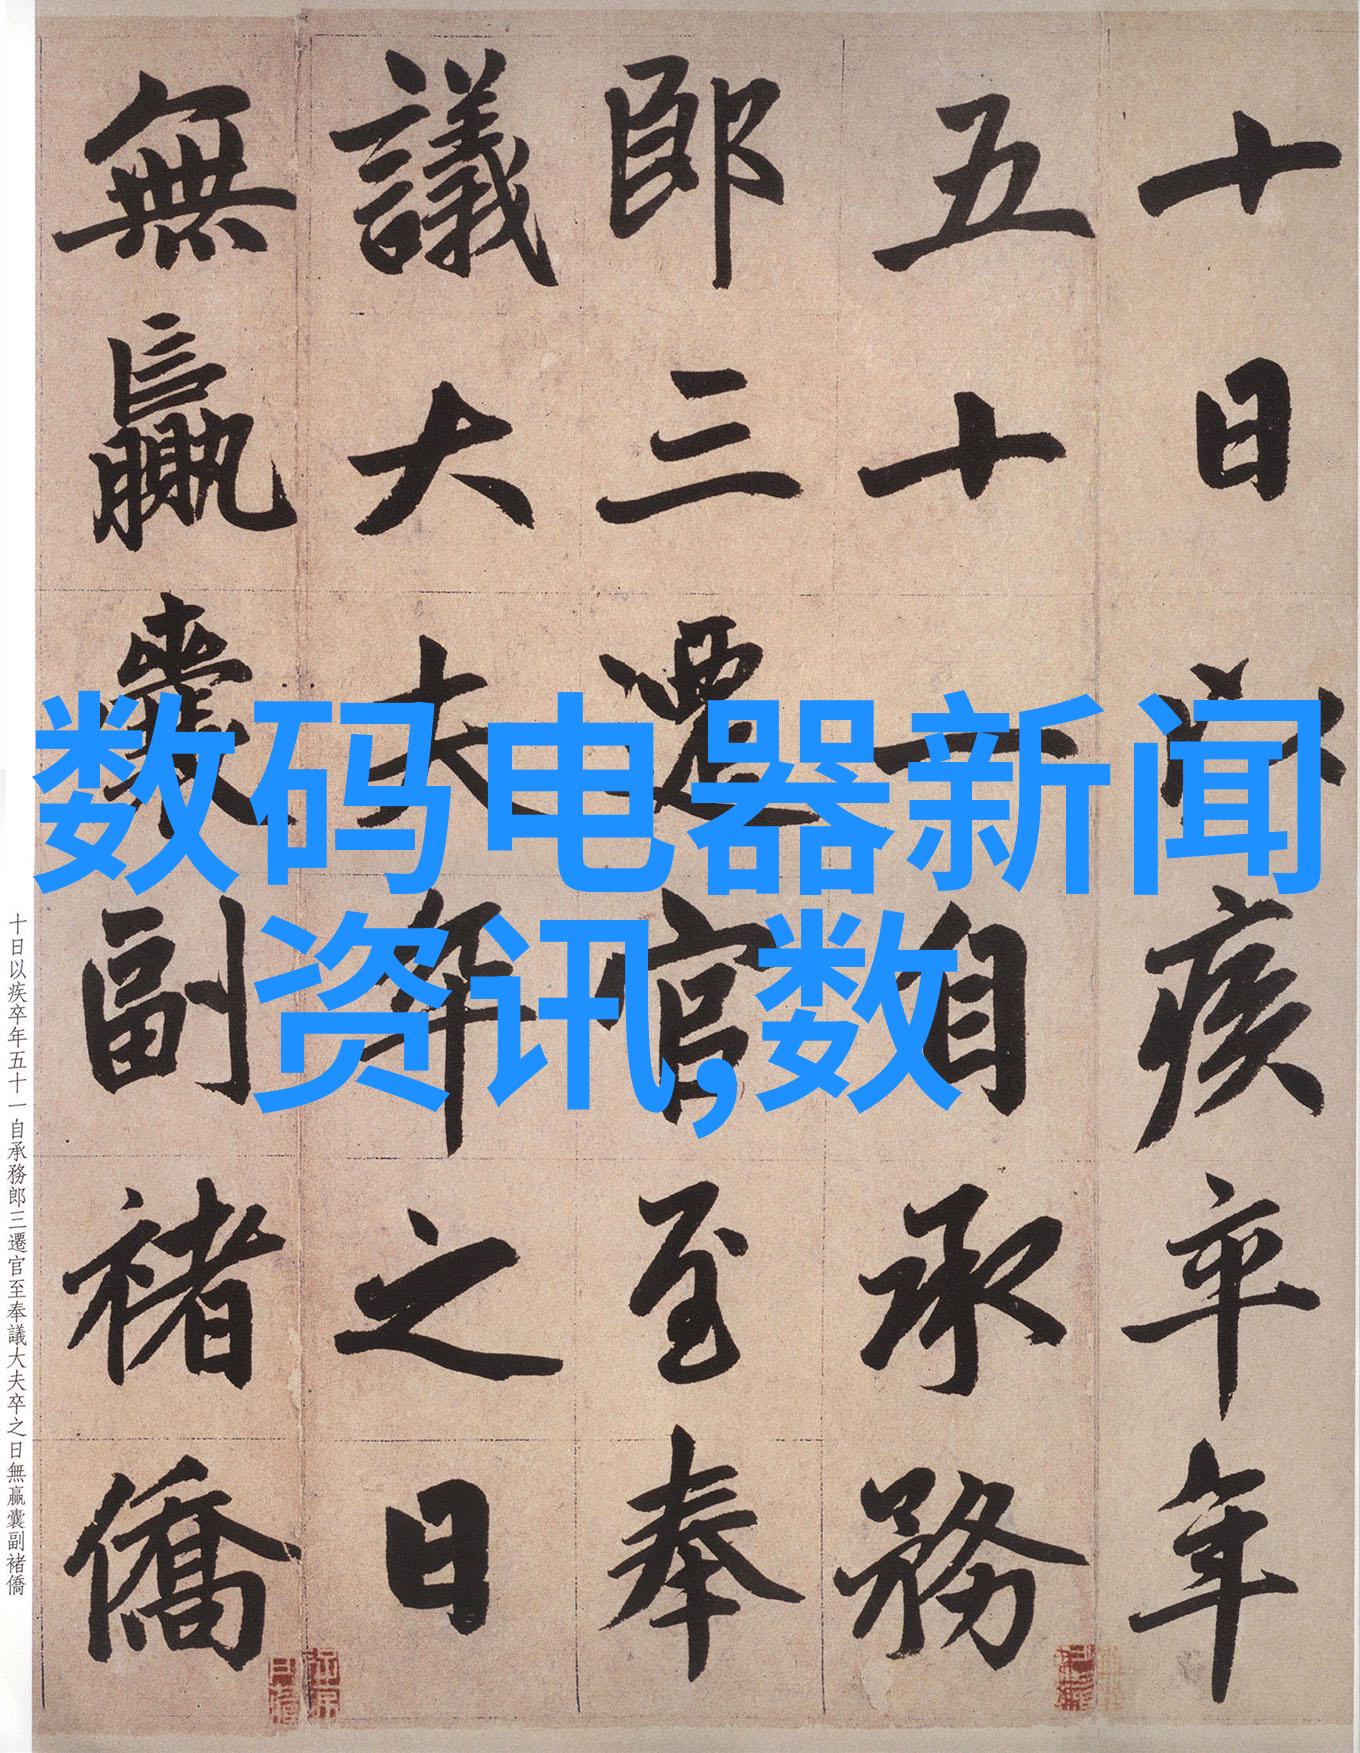 十日以疾卒年
五十一自承務
郎三遷官至奉
議大夫卒之日
無贏囊副褚僑
数码电器新闻
资讯,数
十日以疾卒年五十一自承務郎三遷官至奉議大夫卒之日無贏囊副褚僑